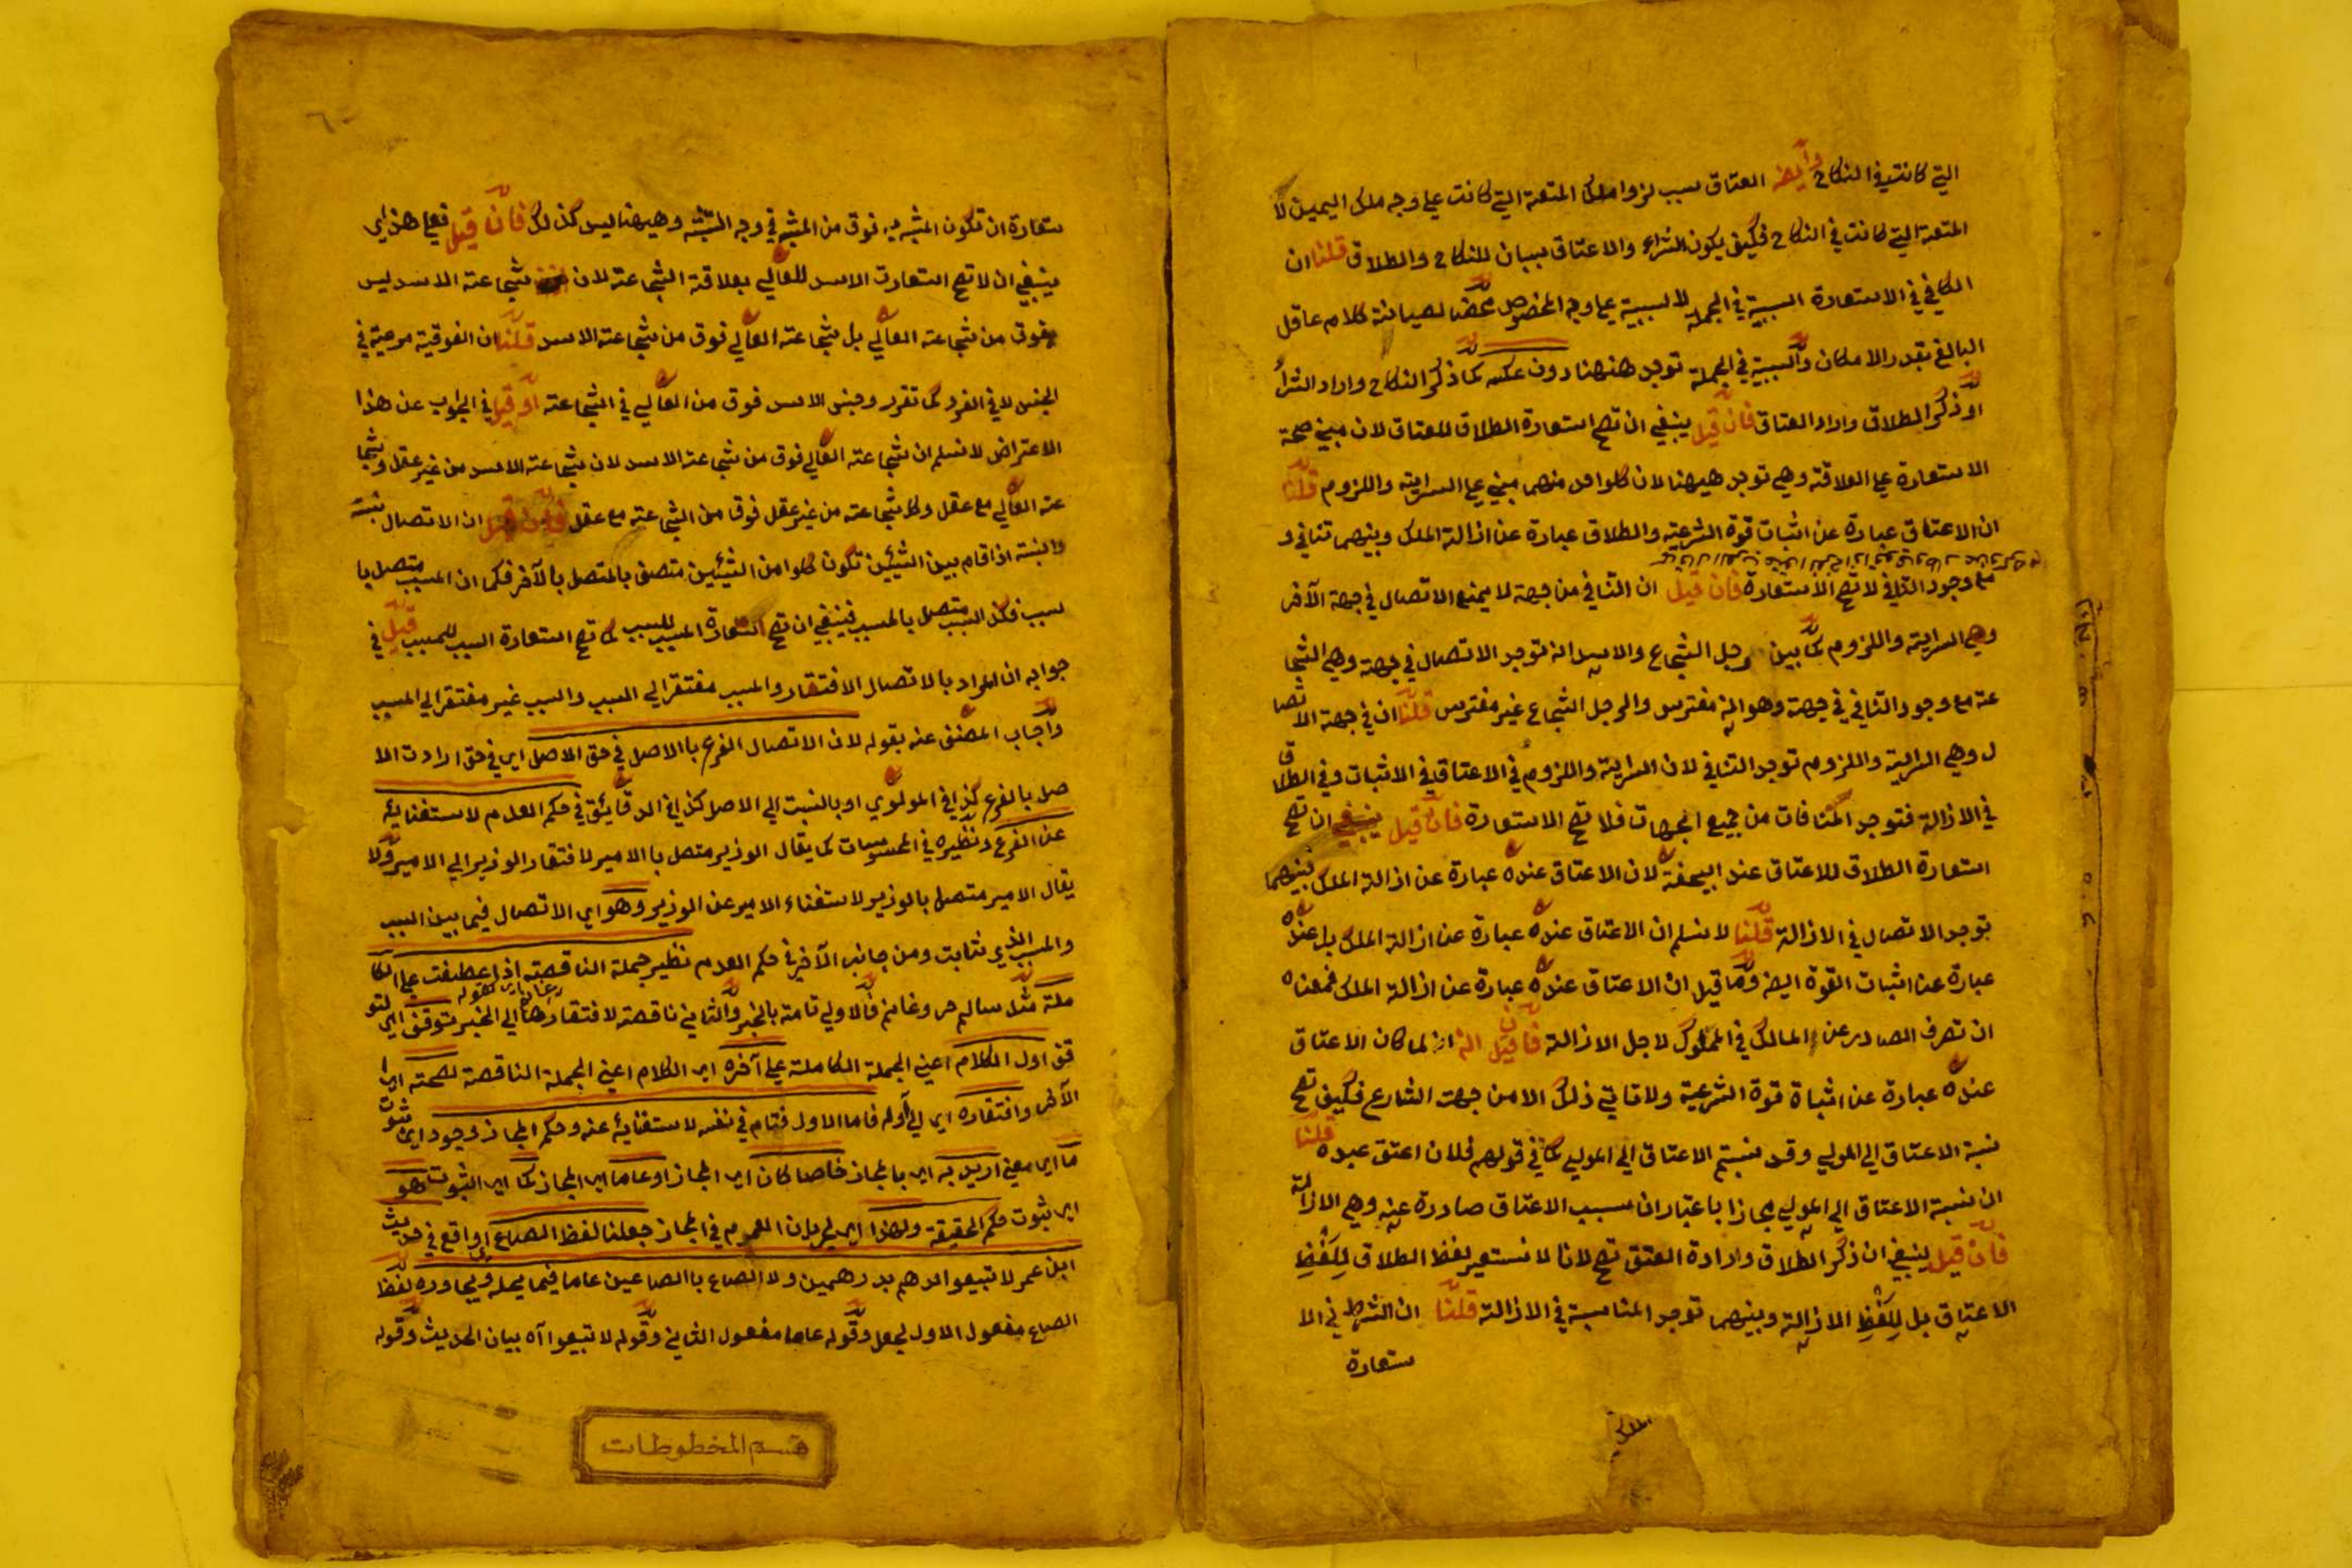 التي كانت في النكاح وأيضا العتاق سبب لزوال ملك المتعة التي كانت علي وجه ملك اليمين لا
المتعة التي كانت في النكاح فكيف يكون الشراء والاعتاق سببان للنكاح والطلاق قلنا ان
الكافي في الاستعارة السببية في الجملة لا السببية علي وجه المخصوص محضا لصيانة كلام عاقل
البالغ بقدر الامكان والسببية في الجملة توجد ههنا دون عكسه كما ذكر النكاح واراد الشرأ
او ذكر الطلاق واراد العتاق فان قيل ينبغي ان تصح استعارة الطلاق للعتاق لان مبني صحة
الاستعارة علي العلاقة وهي توجد هيهنا لان كلواحد منهما مبني علي السراية واللزوم قلنا
ان الاعتاق عبارة عن اثبات قوة الشرعية والطلاق عبارة عن ازالة الملك وبينهما تنافي و
مع وجود التنافي لا تصح الاستعارة فان قيل ان التنافي من جهة لا يمنع الاتصال في جهة الآخر
وهي السراية واللزوم كما بين رجل الشجاع والاسد انه توجد الاتصال في جهة وهي الشجا
عة مع وجود التنافي في جهة وهو انه مفترس والرجل الشجاع غير مفترس قلنا ان في جهة الاتصا
ل وهي السراية واللزوم توجد التنافي لان السراية واللزوم في الاعتاق في الاثبات وفي الطلاق
في الازالة فتوجد المنافات من جميع الجهات فلا تصح الاستعارة فان قيل ينبغي ان تصح
استعارة الطلاق للاعتاق عند ابيحنفة لان الاعتاق عنده عبارة عن ازالة الملك فبينهما
توجد الاتصال في الازالة قلنا لا نسلم ان الاعتاق عنده عبارة عن ازالة الملك بل عنده
عبارة عن اثبات القوة ايضا وما قيل ان الاعتاق عنده عبارة عن ازالة الملك فمعناه
ان تصرف الصادر عن المالك في المملوك لاجل الازالة فان قيل انه لما كان الاعتاق
عنده عبارة عن اثباة قوة الشرعية ولا تاتي ذلك الا من جهت الشارع فكيف تصح
نسبة الاعتاق الي المولي وقد نسبتم الاعتاق الي المولي كما في قولهم فلان اعتق عبده قلنا
ان نسبة الاعتاق الي المولي مجازا باعتبار ان سبب الاعتاق صادرة عنه وهي الازالة
فان قيل ينبغي ان ذكر الطلاق وارادة العتق تصح لانا لا نستعير لفظ الطلاق للفظ
الاعتاق بل للفظ الازالة وبينهما توجد المناسبة في الازالة قلنا ان الشرط في الا
ستعارة
ستعارة ان تكون المشبه به فوق من المشبه في وجه الشبه وهيهنا ليس كذلك فان قيل فعلي هذا
ينبغي ان لا تصح استعارت الاسد للعالي بعلاقة الشجاعة لان شجاعة الاسد ليس
فوق من شجاعة العالي بل شجاعة العالي فوق من شجاعة الاسد قلنا ان الفوقية مرعية في
الجنس لا في الفرد كما تقرر وجنس الاسد فوق من العالي في الشجاعة او قيل في الجواب عن هذا
الاعتراض لا نسلم ان شجاعة العالي فوق من شجاعة الاسد لان شجاعة الاسد من غير عقل وشجا
عة العالي مع عقل وكل شجاعة من غير عقل فوقا من الشجاعة مع عقل فان قيل ان الاتصال نسبة
والنسبة اذا قام بين الشيئين تكون كلوا من الشيئين متصف بالمتصل بالآخر فكما ان المسبب متصل با
لسبب فكذا السبب متصل بالمسبب فينبغي ان تصح استعارة المسبب للسبب كما تصح استعارة السبب للمسبب قيل في
جوابه ان المراد بالاتصال الافتقار والمسبب مفتقر الي السبب والسبب غير مفتقر الي المسبب
واجاب المصنف عنه بقوله لان الاتصال الفرع باالاصل في حق الاصل اي في حق ارادت الا
صل بالفرع كذا في المولوي او بالنسبت الي الاصل كذا في الدقائق في حكم العدم لاستغنائه
عن الفرع ونظيره في المحسوسات كما يقال الوزير متصل باالامير لافتقار الوزير الي الامير ولا
يقال الامير متصل بالوزير لاستغناء الامير عن الوزير وهو اي الاتصال فيما بين السبب
والمسبب الذي نثابت ومن جانب الآخر في حكم العدم نظير جملة الناقصة اذا عطفت علي الكا
ملة مثل سالم حر وغانم فالاولي تامة بالخبر والثاني ناقصة لافتقارها الي الخبر توقف اي لتو
قف اول الكلام اعني الجملة الكاملة علي آخره اي الكلام اعني الجملة الناقصة لصحته اي
الآخر وافتقاره اي الي أوله فاما الاول فتام في نفسه لاستغنائه عنه وحكم المجاز وجود اي ثبوت
ما اي معني اريد به اي بالمجاز خاصا كان اي المجاز او عاما اي المجاز كما اي الثبوت هو
اي ثبوت حكم الحقيقة ولهذا اي لجريان العموم في المجاز جعلنا لفظ الصاع واقع في حديث
ابن عمر لا تبيعوا الدهم بدرهمين ولا الصاع باالصاعين عاما فيما يحله ويجاوره لفظ
الصاع مفعول الاول لجعل وقوله عاما مفعول الثاني وقوله لا تبيعوا آه بيان الحديث وقوله
قسم المخطوطات